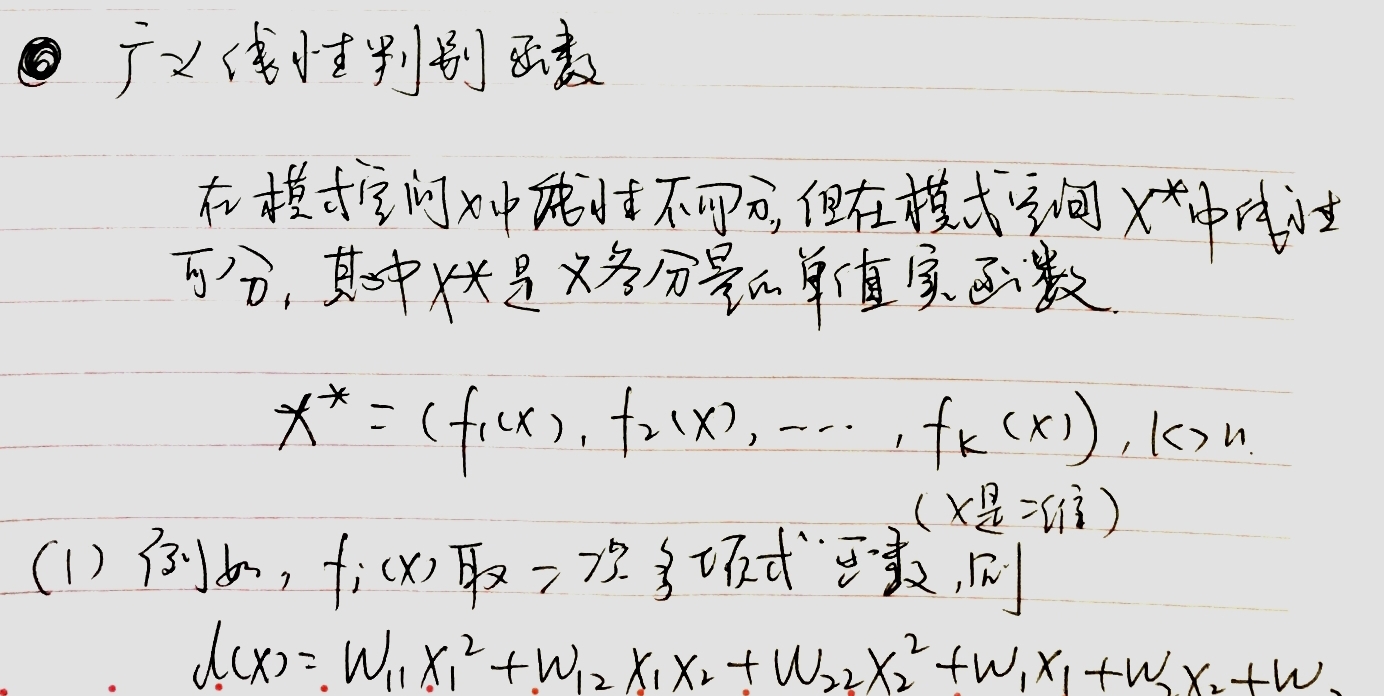 ⑥ 广义线性判别函数
在模式空间X中线性不可分,但在模式空间X*中线性
可分,其中X*是X各分量的单值实函数.
X* = (f₁(X), f₂(X), ---- , fₖ(X)), k>n.
(X是二维)
(1) 例如, fᵢ(X)取二次多项式函数,则
d(X)= W₁₁X₁² + W₁₂X₁X₂ + W₂₂X₂² + W₁X₁ + W₂X₂ + W